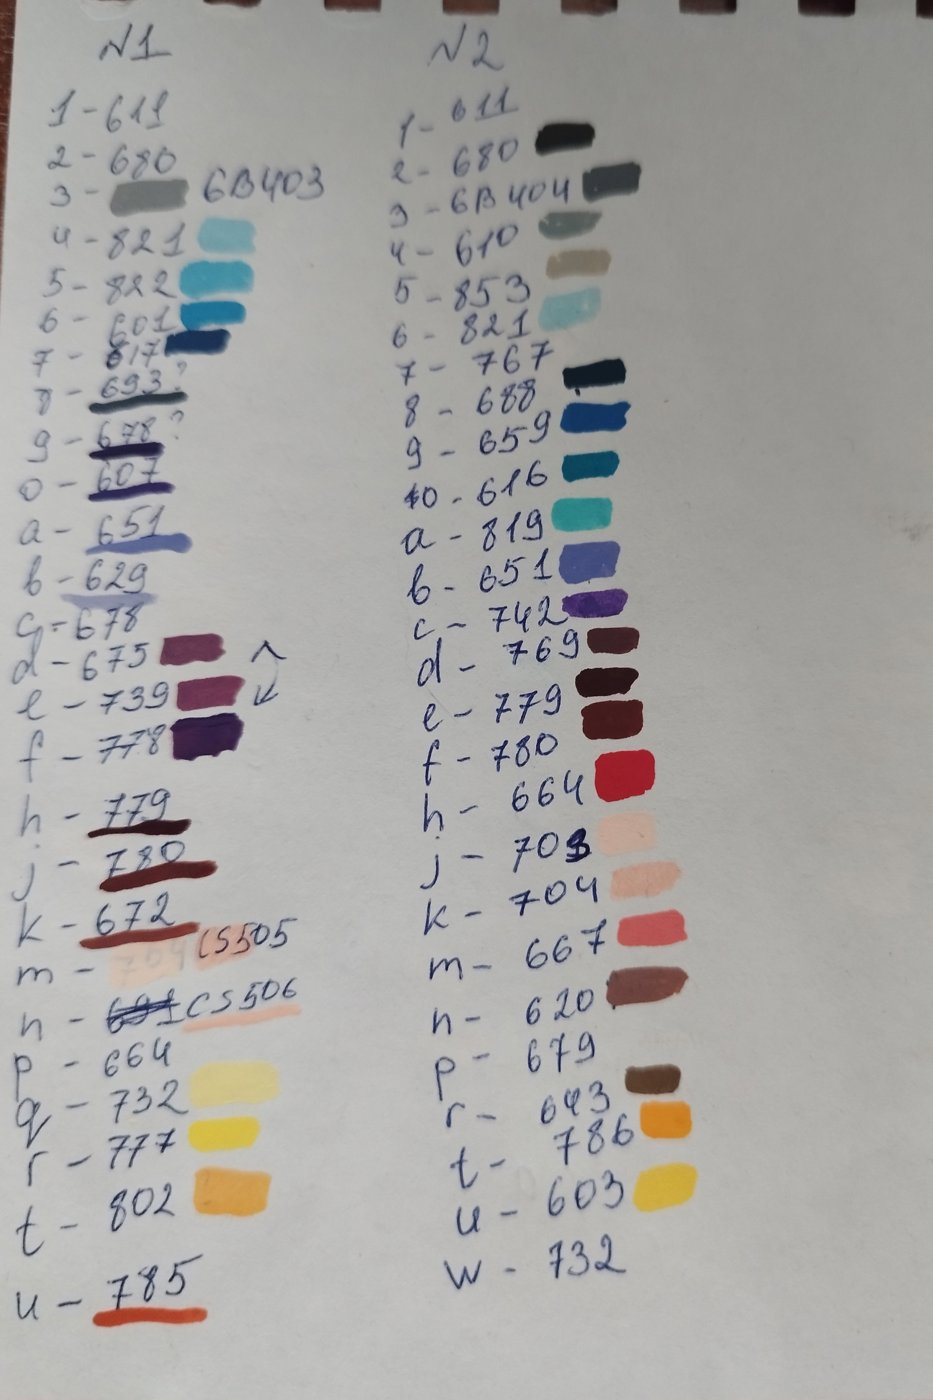 N1
1 - 611
2 - 680
3 - 6B403
4 - 821
5 - 822
6 - 601
7 - 617
8 - 693?
9 - 678?
0 - 607
a - 651
b - 629
c - 678
d - 675
e - 739
f - 778
h - 779
j - 780
k - 672
m - 704 CS505
n - 691 CS506
p - 664
q - 732
r - 777
t - 802
u - 785
N2
1 - 611
2 - 680
3 - 6B404
4 - 610
5 - 853
6 - 821
7 - 767
8 - 688
9 - 659
10 - 616
a - 819
b - 651
c - 742
d - 769
e - 779
f - 780
h - 664
j - 703
k - 704
m - 667
n - 620
p - 679
r - 643
t - 786
u - 603
w - 732